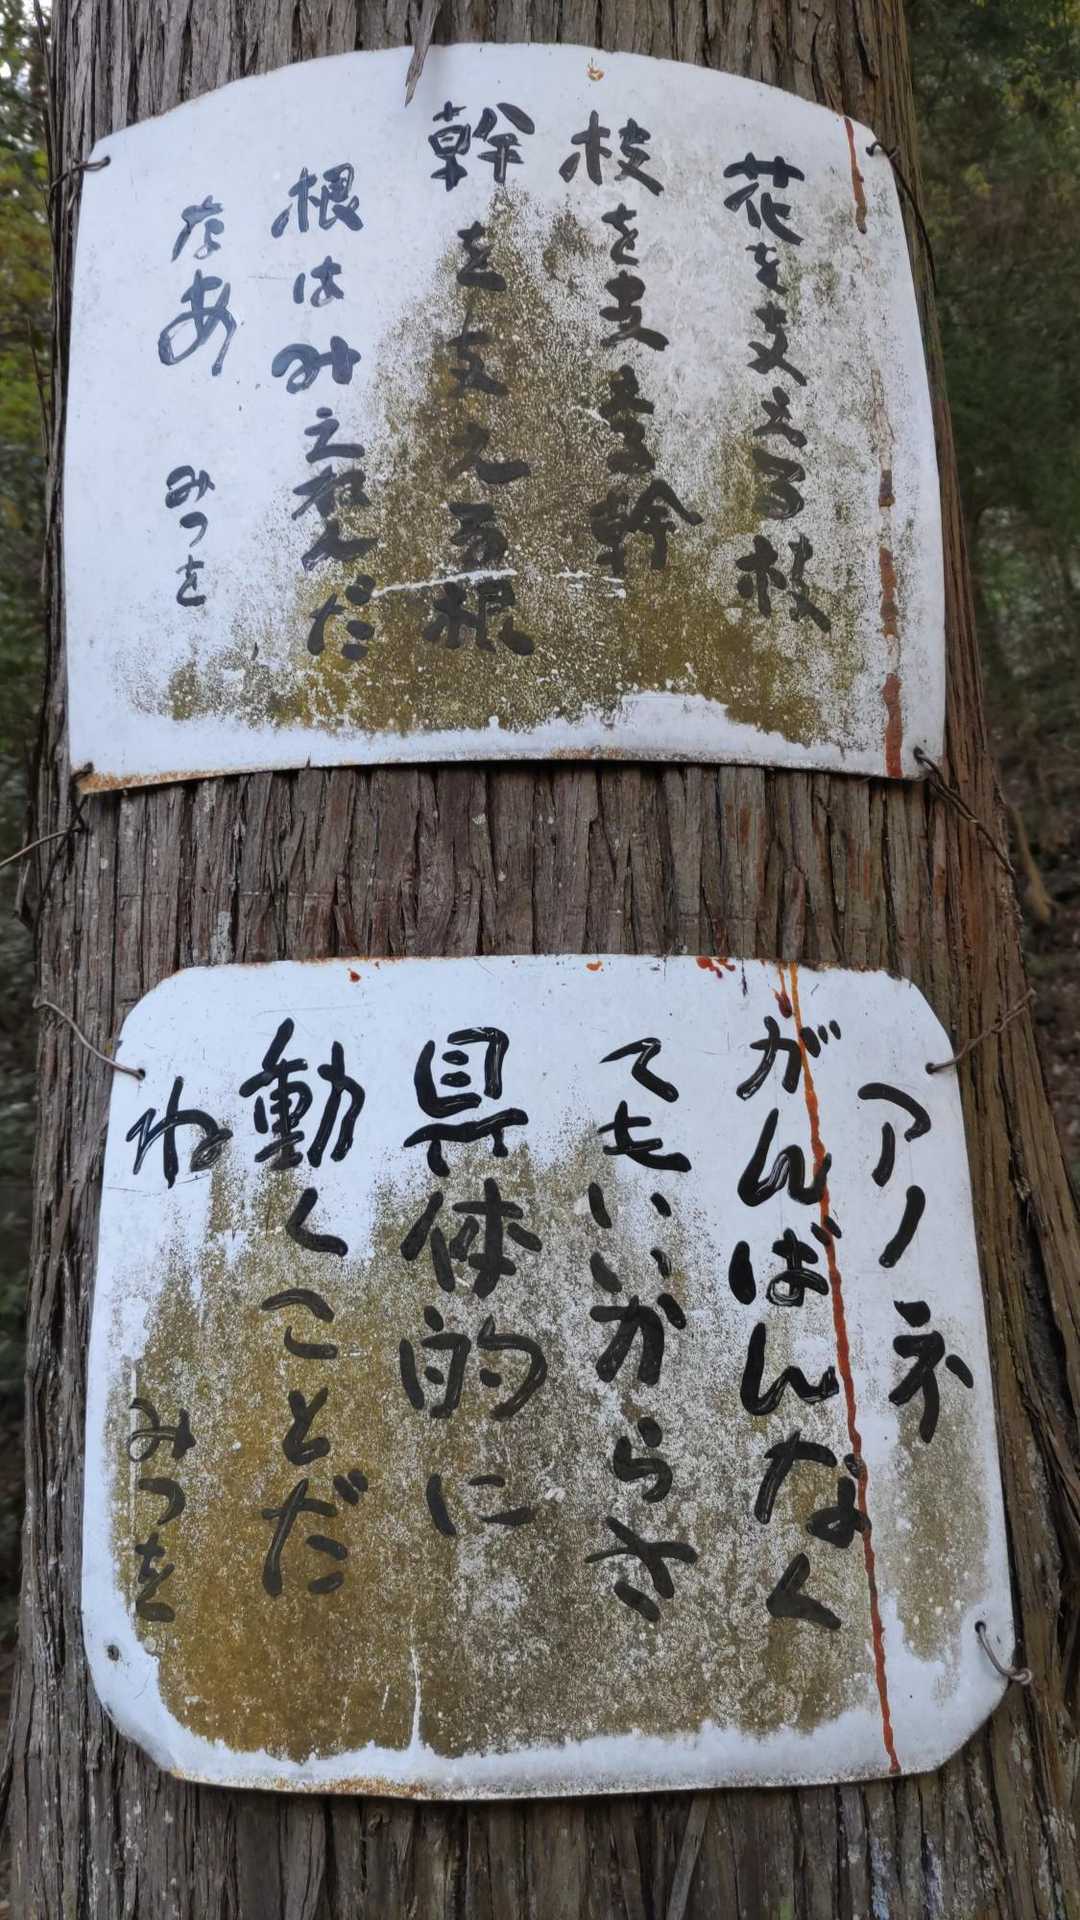 花を支える枝
枝を支える幹
幹を支える根
根はみえねんだ
なあ
みつを
アノネ
がんばんなく
てもいいからさ
具体的に
動くことだ
ね
みつを